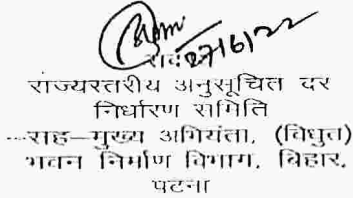 27/6/22
राज्यस्तरीय अनुसूचित दर
निर्धारण समिति
-सह-मुख्य अभियंता, (विधुत)
भवन निर्माण विभाग, बिहार,
पटना